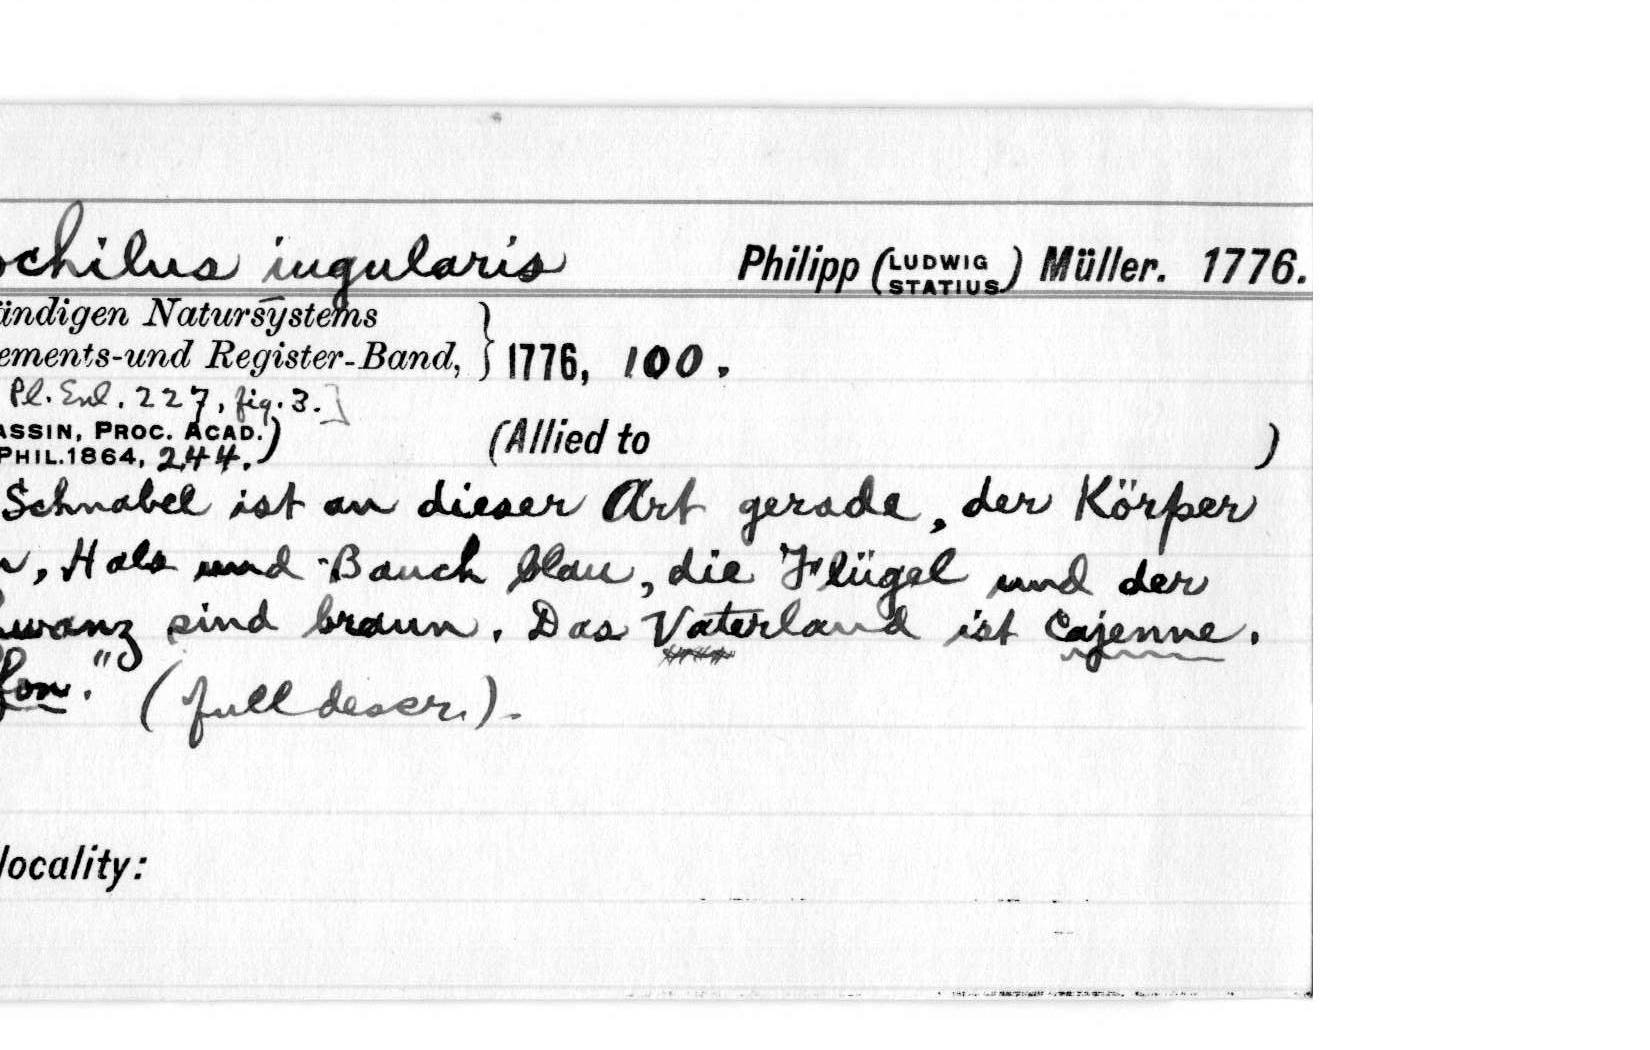 ochilus iugularis Philipp (LUDWIG STATIUS) Müller. 1776.
ändigen Natursystems
ements-und Register-Band, } 1776, 100.
Pl. Enl. 227, fig. 3.]
ASSIN, PROC. ACAD.
PHIL. 1864, 244.) (Allied to )
Schnabel ist an dieser Art gerade, der Körper
n, Hals und Bauch blau, die Flügel und der
hwanz sind braun. Das Vaterland ist Cajenne.
fon." (full descr.).
locality: